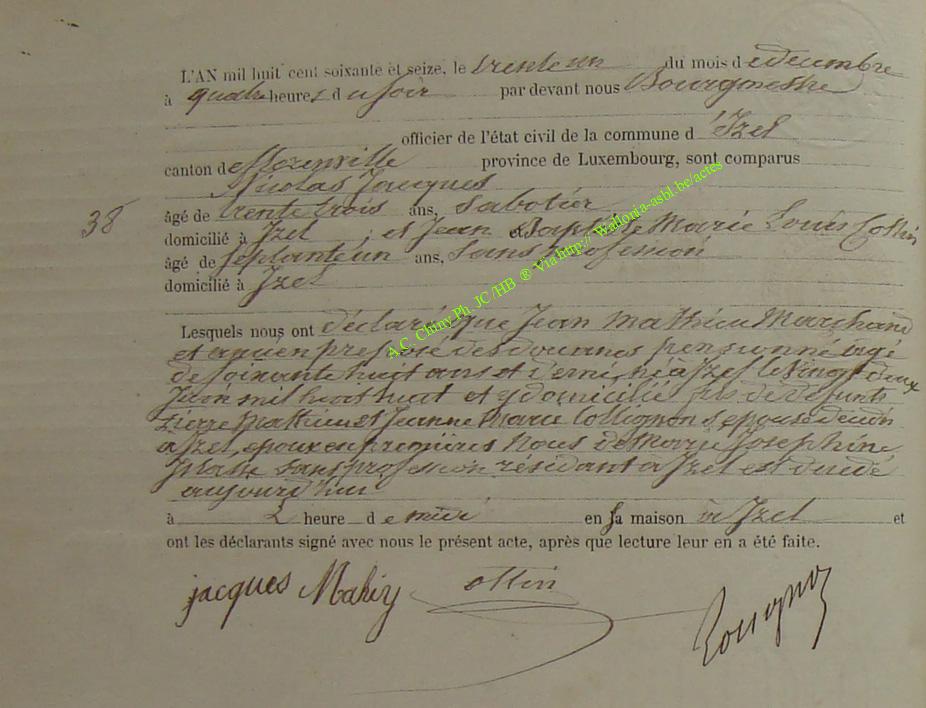 L'AN mil huit cent soixante et seize, le trente un du mois d e decembre
à quatre heures du soir par devant nous Bourgmestre
officier de l'état civil de la commune d 'Izel
canton de florenville province de Luxembourg, sont comparus
Nicolas Jacques
38
âgé de trente trois ans, sabotier
domicilié à Izel , et Jean Baptiste Marie Louis Collin
âgé de septante un ans, sans profession
domicilié à Izel
Lesquels nous ont déclaré que Jean Mathieu Marchand
et ancien preposé des douanes pensionné agé
de soixante huit ans et demi né à Izel le vingt deux
Juin mil huit huit et y domicilié fils de defunts
Pierre Mathieu et Jeanne Marie Collignon
a Izel, epoux en premières noces de Marie Josephine
sans profession residant à Izel est decedé
aujourd'hui
à 2 heure de midi en sa maison à Izel et
ont les déclarants signé avec nous le présent acte, après que lecture leur en a été faite.
jacques Mahiy
A.C. Chiny Ph. JC /HB ® Via http:// Wallonia-asbl.be/actes